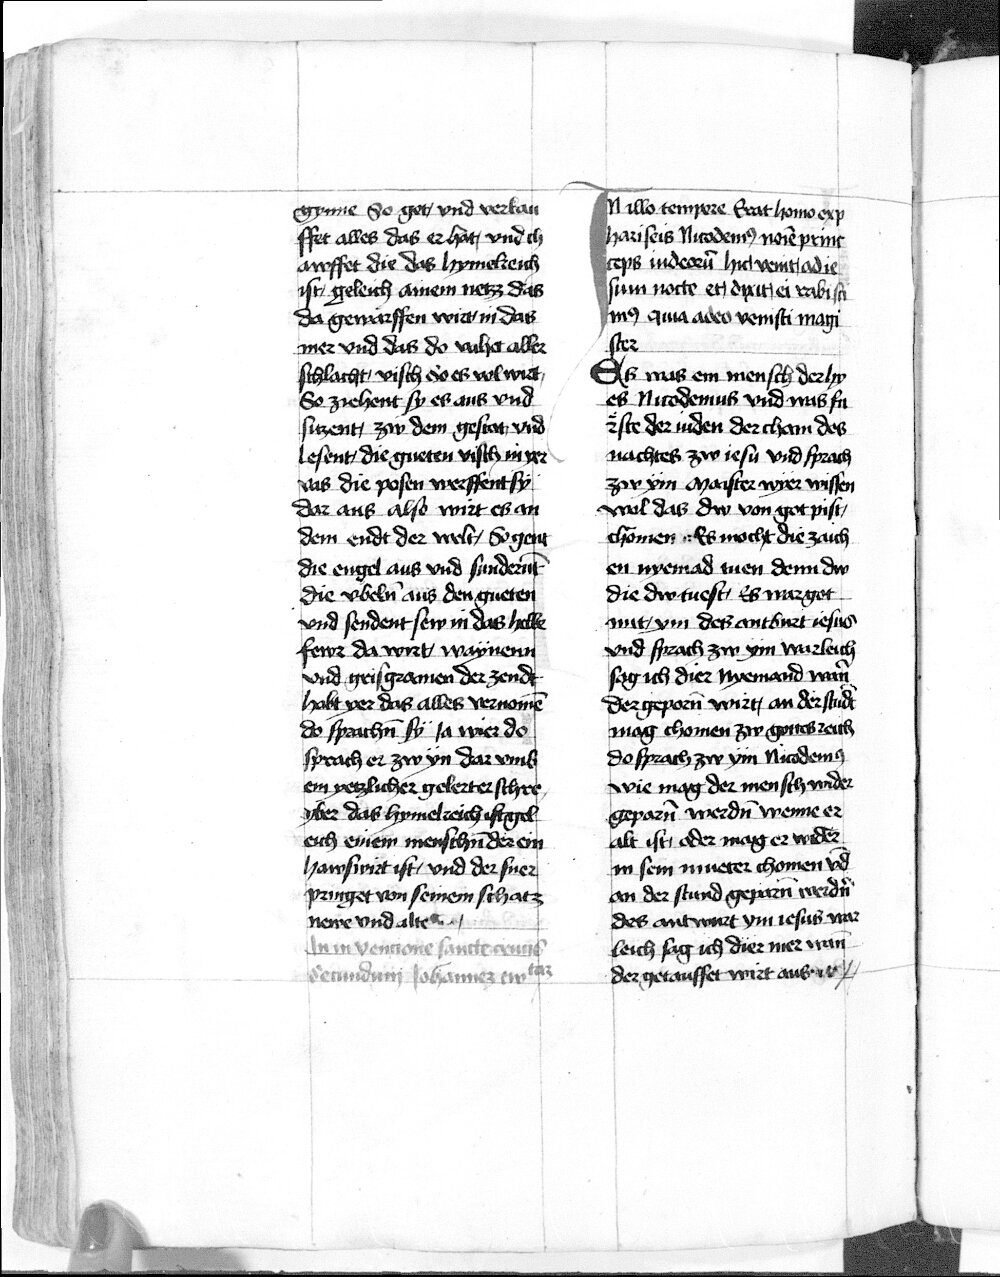 gynne So get vnd verkau
ffet alles das er hat vnd ch
awffet die das hymelreich
ist geleich ainem netz das
da geworffen wirt in das
mer vnd das do vahet aller
schlacht visch So es vol wirt
So ziehent sy es aus vnd
sitzent zw dem gestat vnd
lesent die gueten visch in yer
vas die posen werffent sy
dar aus also wirt es an
dem endt der welt So gent
die engel aus vnd sundernt
die vbeln aus den gueten
vnd sendent sew in das helle
fewr da wirt waynenn
vnd geisgramen der zendt
habt yer das alles vernome
do sprachn sy Ja wier do
sprach er zw yn dar vmb
ein yetzlicher gelerter schre
yber das hymelreich ist gel
eich einem menschn der ein
hawswirt ist vnd der fuer
pringet von seinem schatz
newe vnd alte
In inventione sancte crucis
Secundum Johannez
N illo tempore Erat homo exp
hariseis Nicodem9 noie princ
ceps iudeoru hic venit ad ie
sum nocte et dixit ei rabi sci
m9 quia a deo venisti magi
ster
Es was ein mensch der hy
es Nicodemus vnd was fu
rste der iuden der cham des
nachtes zw iesu vnd sprach
zw ym Maister wyer wissen
wol das dw von got pist
chomen Es mocht die zaich
en nyemad tuen denn dw
die dw tuest Es war got
mit ym des antburt iesus
vnd sprach zw ym warleich
sag ich dier Nyemand wan
der geporn wirt an der stund
mag chomen zw gottes reich
do sprach zw ym Nicodem9
wie mag der mensch wider
geparn werdn wenne er
alt ist oder mag er wider
in sein mueter chomen vd
an der stund geparn werdn
des antwurt ym iesus war
leich sag ich dier mer wan
der getauffet wirt aus